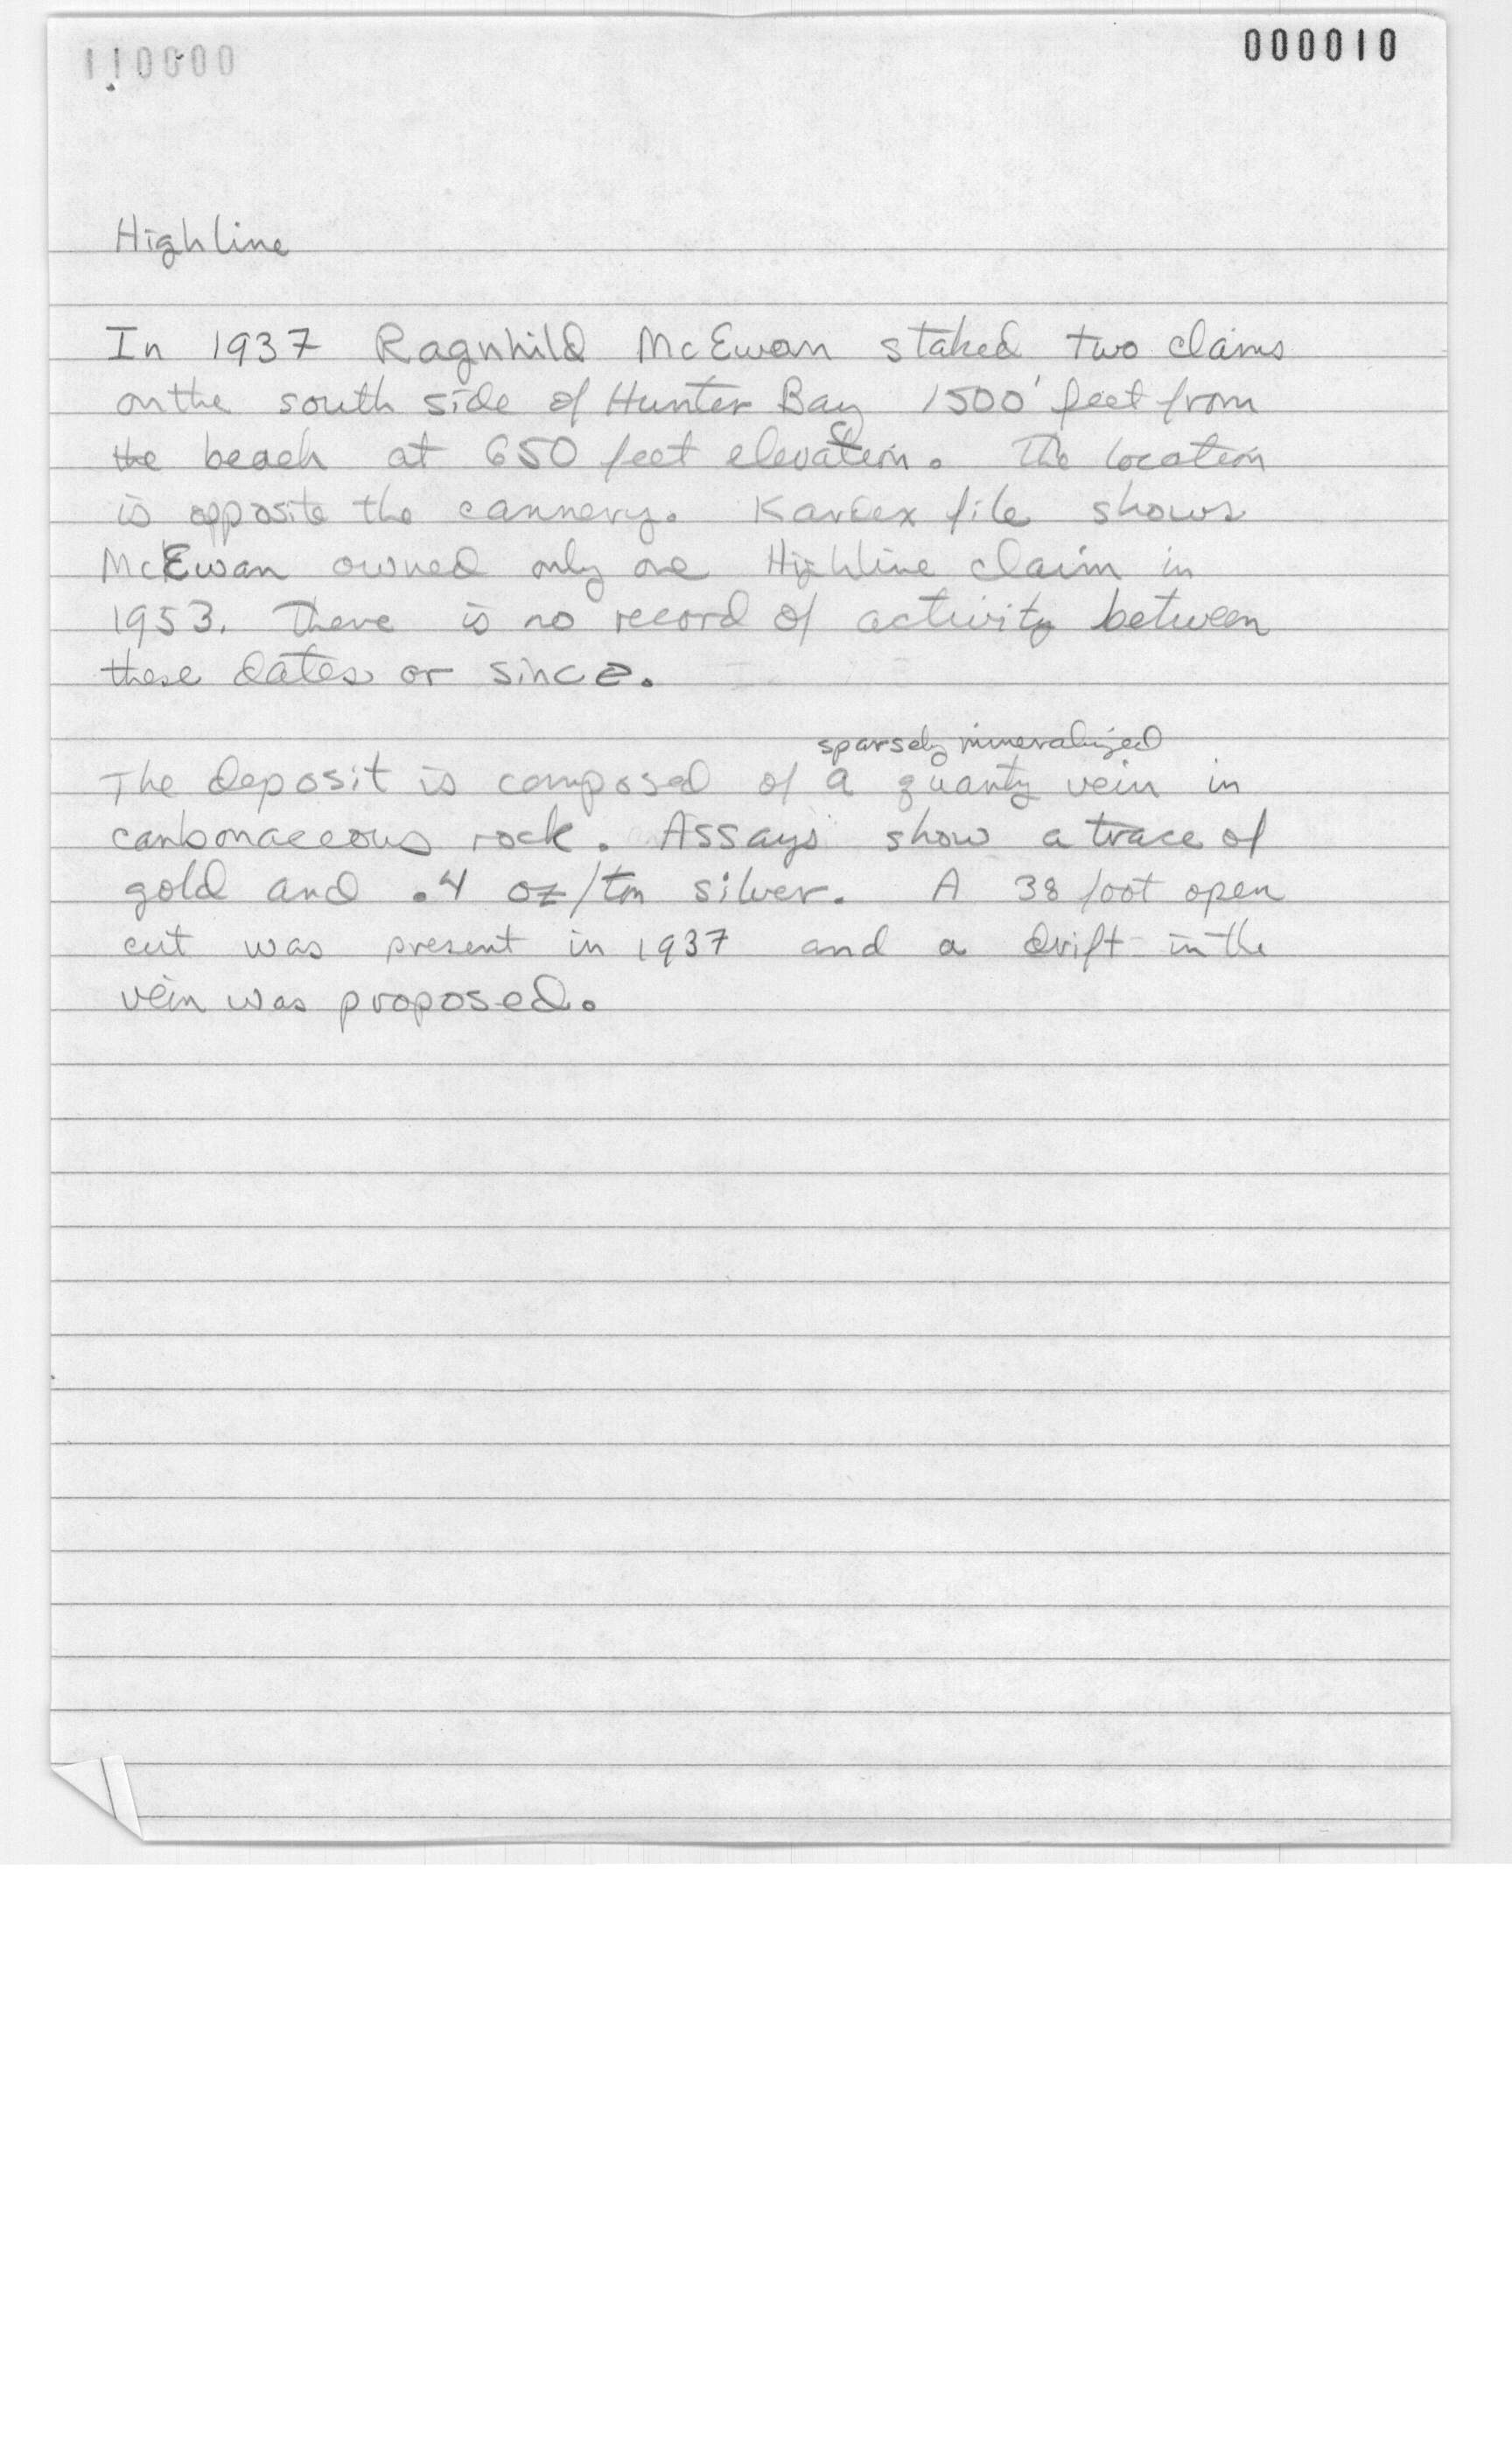 110000
000010
Highline
In 1937 Ragnhild McEwan staked two claims
on the south side of Hunter Bay 1500' feet from
the beach at 650 feet elevation. The location
is opposite the cannery. Kardex file shows
McEwan owned only one Highline claim in
1953. There is no record of activity between
these dates or since.
sparsely mineralized
The deposit is composed of a quartz vein in
carbonaceous rock. Assays show a trace of
gold and .4 oz/ton silver. A 38 foot open
cut was present in 1937 and a drift in the
vein was proposed.